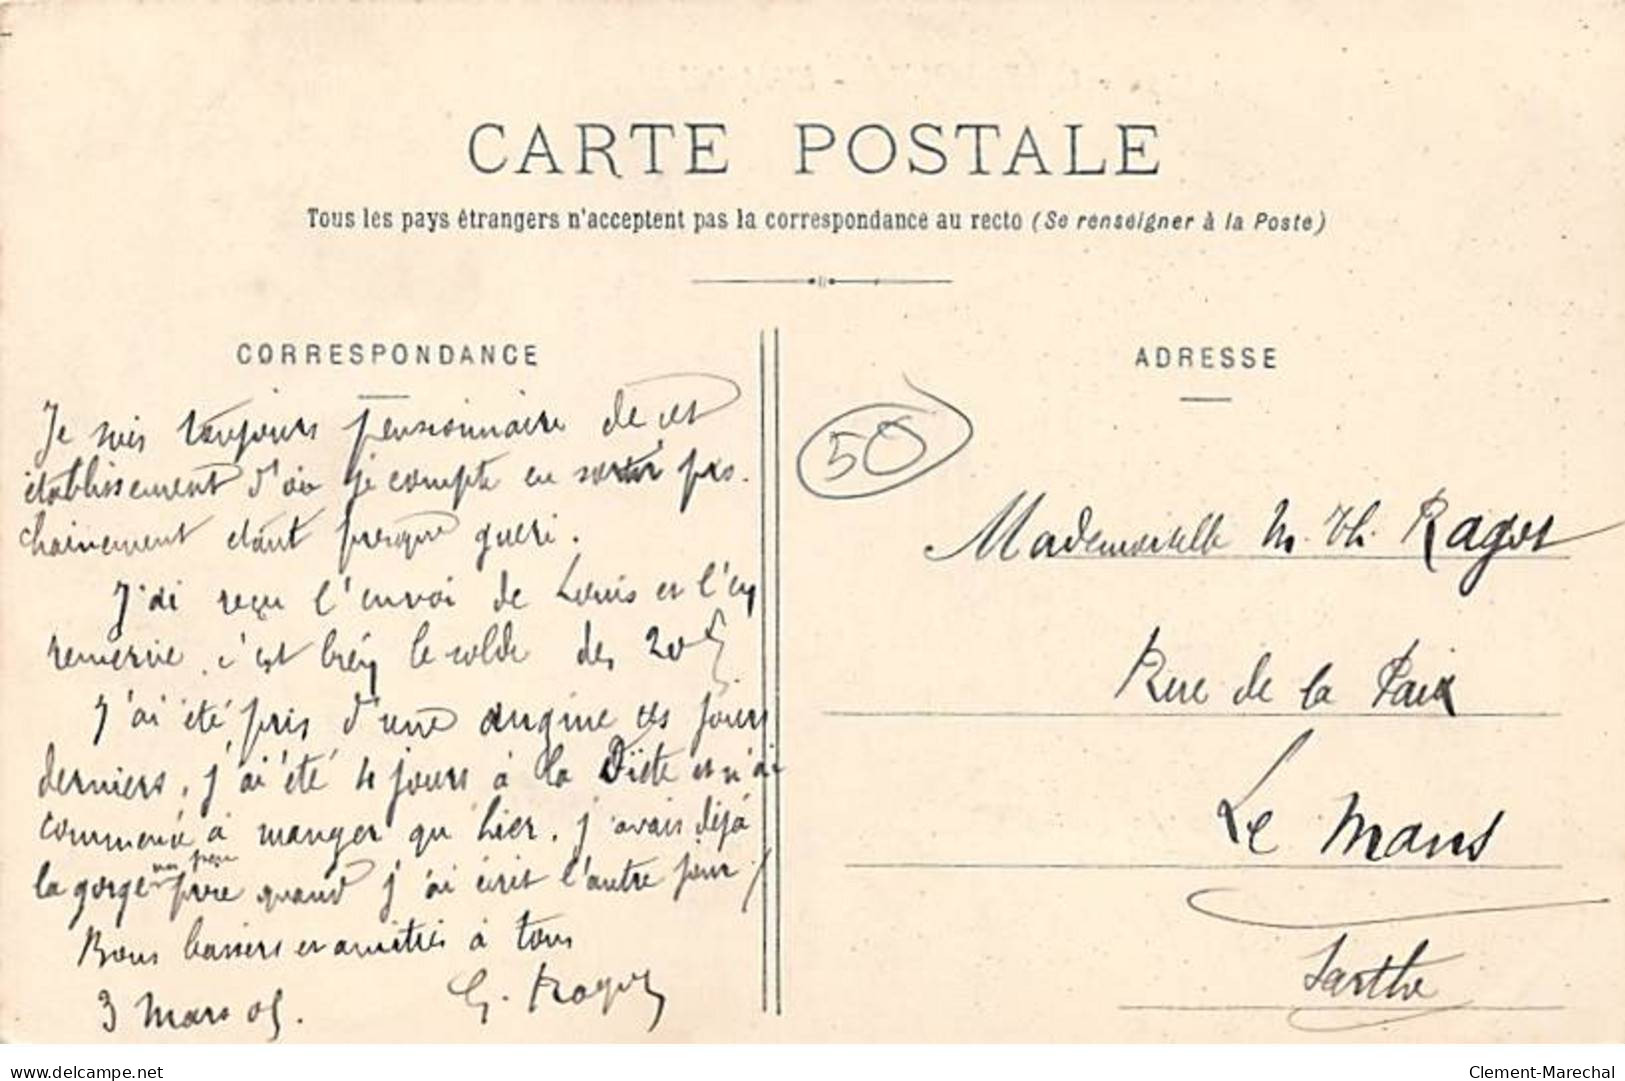 CARTE POSTALE
Tous les pays étrangers n'acceptent pas la correspondance au recto (Se renseigner à la Poste)
CORRESPONDANCE
Je suis toujours pensionnaire de cet
établissement d'où je compte en sortir pro-
chainement étant presque guéri.
J'ai reçu l'envoi de Louis et l'en
remercie, c'est bien le solde des 20f
J'ai été pris d'une angine ces jours
derniers, j'ai été 4 jours à la Diète et n'ai
commencé à manger qu'hier. j'avais déjà
la gorge prise quand j'ai écrit l'autre jour
Bons baisers et amitiés à tous
3 Mars 05. G. Ragot
ADRESSE
50
Mademoiselle M. Th. Ragot
Rue de la Paix
Le Mans
Sarthe
www.delcampe.net
Clement-Marechal